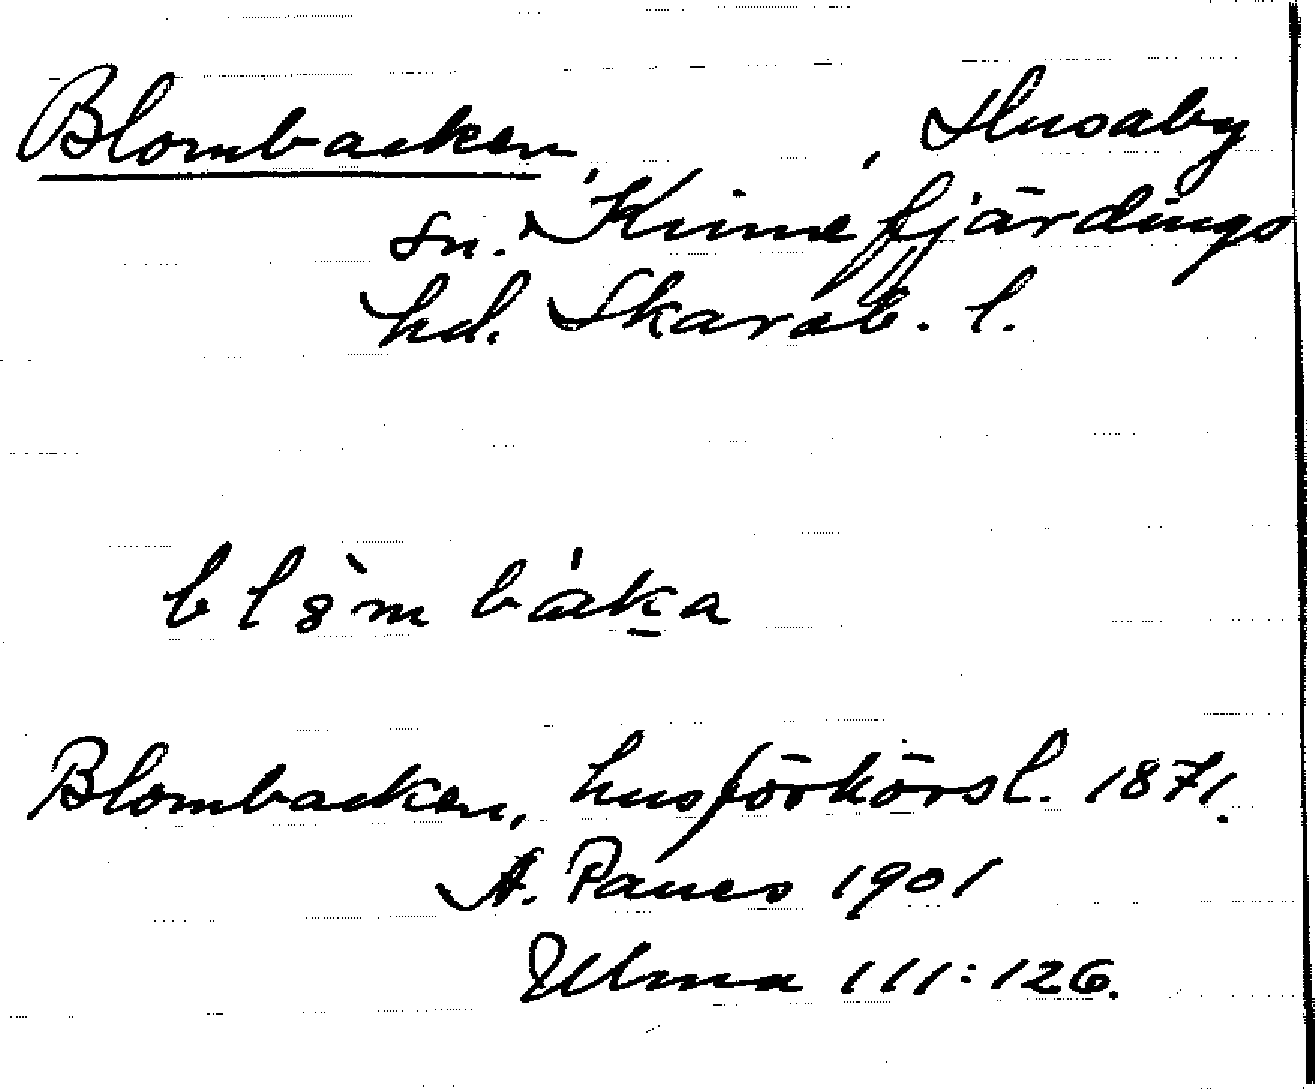 Blombacken, , Husaby
sn. Kinnefjärdings
hd. Skarab. l.
bl8̀m báka
Blombacken, husförhörsl. 1871.
A. Paues 1901
Ulma 111:126.